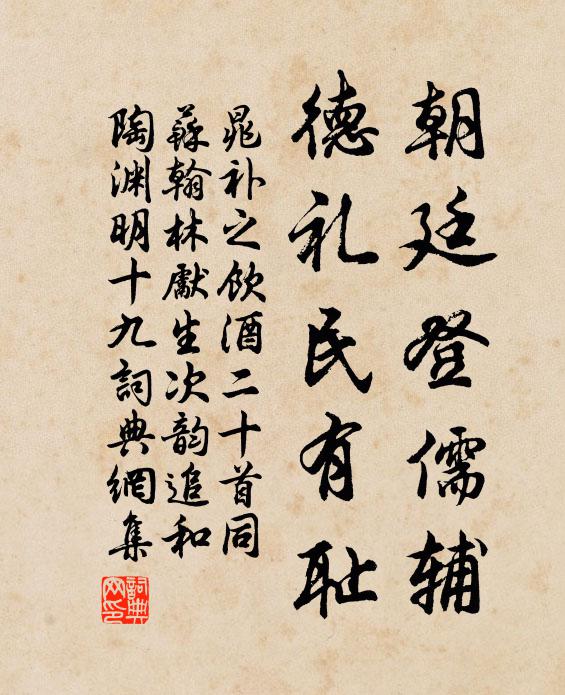 朝廷登儒辅
德礼民有耻
晁补之饮酒二十首同
苏翰林献生次韵追和
陶渊明十九词典网集
詞典网印